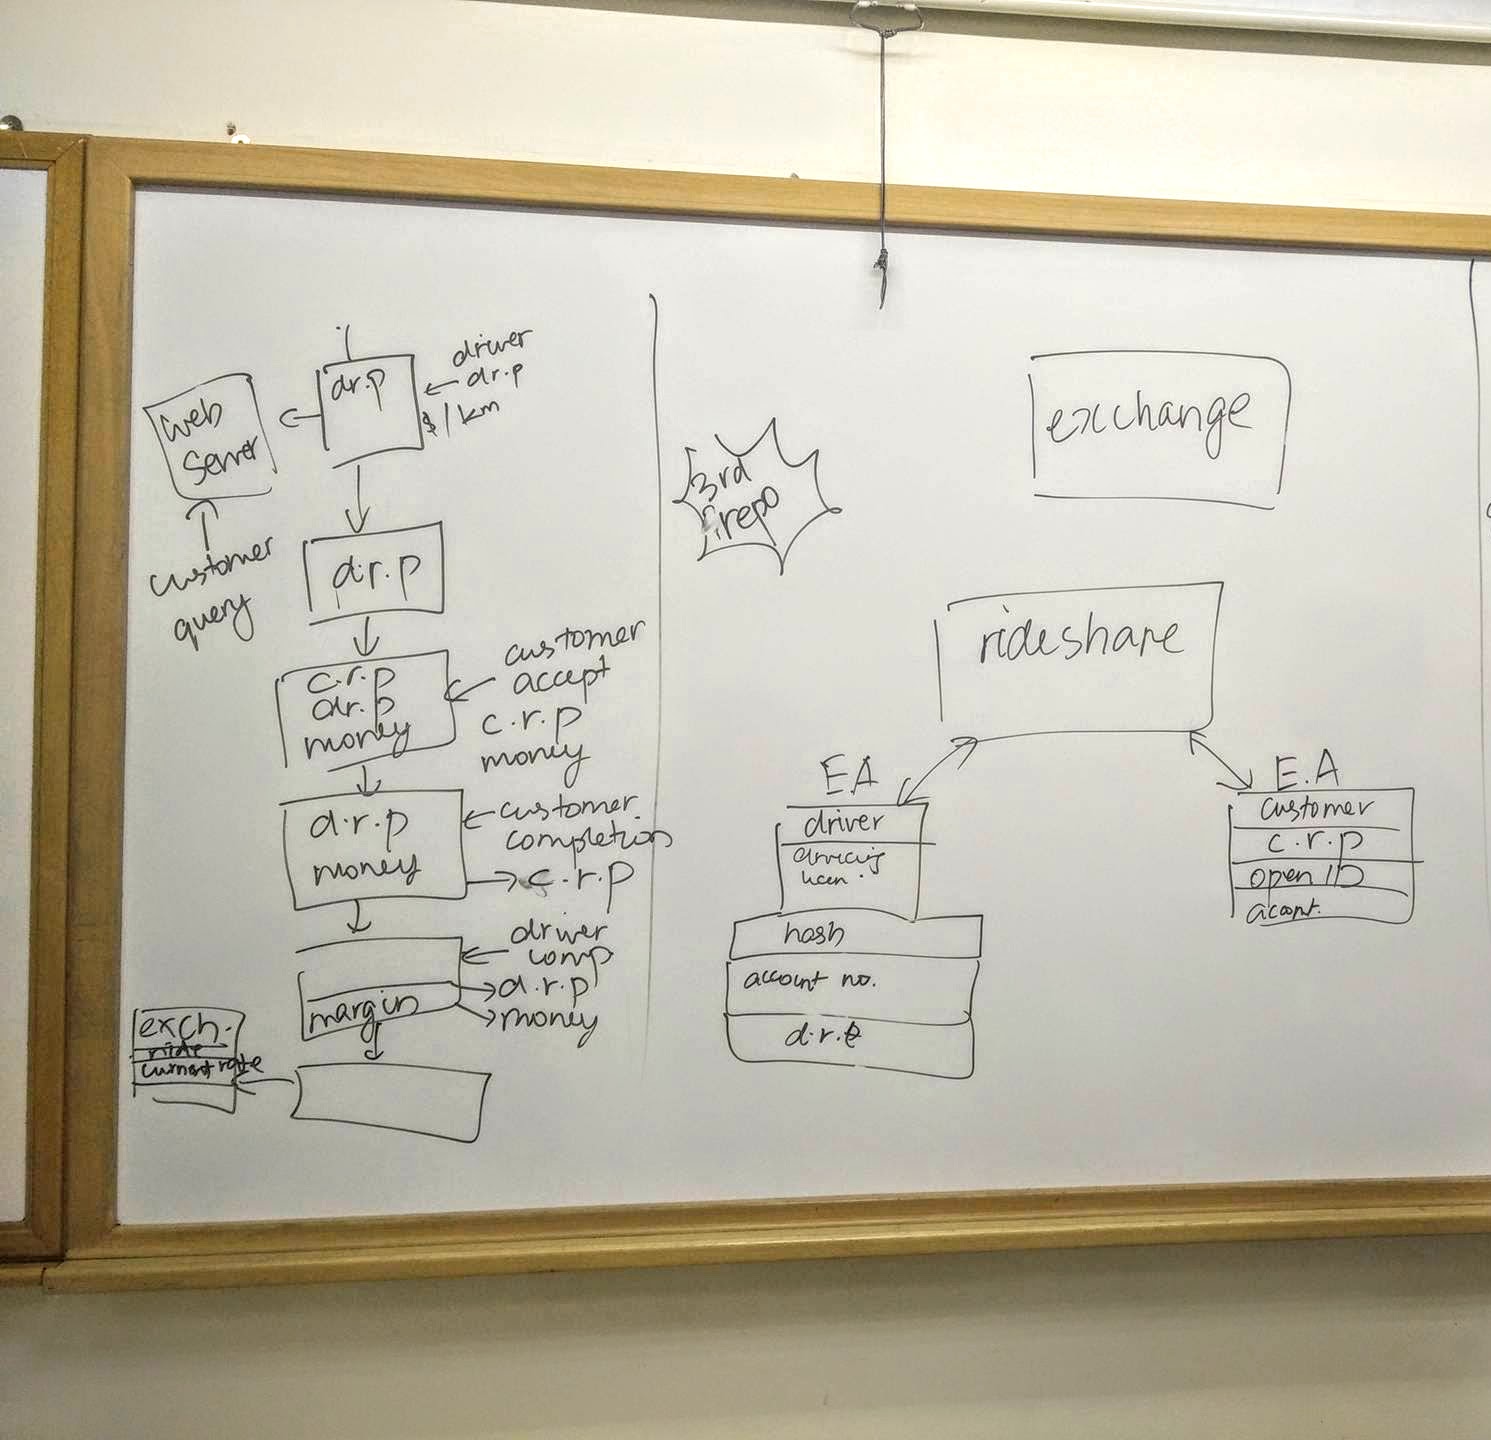 driver
dr.p
$/km
dr.p
web
server
customer
query
d.r.p
c.r.p
dr.p
money
customer
accept
c.r.p
money
d.r.p
money
customer
completion
c.r.p
driver
comp
d.r.p
money
margin
exch.
ride
current rate
3rd
repo
exchange
rideshare
EA
driver
licen.
hash
account no.
E.A
customer
c.r.p
open ID
acopnt.